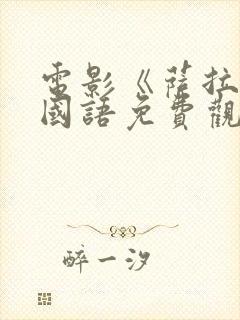 電影《薩拉
國語免費觀
醉一汐